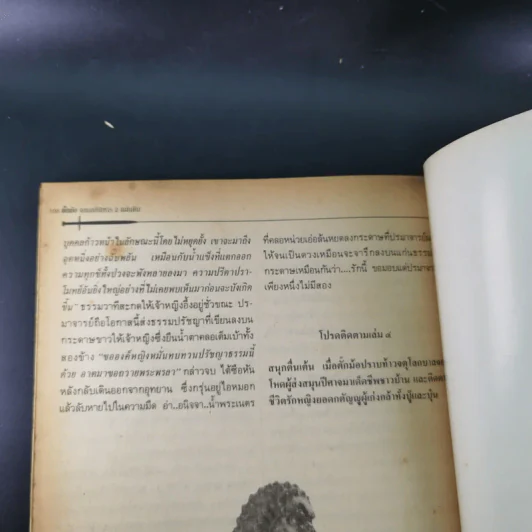 บุคคลก้าวหน้าในลักษณะนี้โดยไม่หยุดยั้ง เขาจะมาถึง
จุดหนึ่งอย่างฉับพลัน เหมือนกับน้ำแข็งที่แตกออก
ความทุกข์ทั้งปวงจะพังทลายลงมา ความปรีดาปรา-
โมทย์อันยิ่งใหญ่อย่างที่ไม่เคยพบเห็นมาก่อนจะบังเกิด
ขึ้น" ธรรมวาทีสะกดให้เจ้าหญิงอึ้งอยู่ชั่วขณะ ปร-
มาจารย์ถือโอกาสนี้ส่งธรรมปรัชญาที่เขียนลงบน
กระดาษขาวให้เจ้าหญิงซึ่งยืนน้ำตาคลอเต็มเบ้าทั้ง
สองข้าง "ขอองค์หญิงหมั่นทบทวนปรัชญาธรรมนี้
ด้วย อาตมาขอถวายพระพรลา" กล่าวจบ ไต้ซือหัน
หลังกลับเดินออกจากอุทยาน ซึ่งกรุ่นอยู่ไอหมอก
แล้วลับหายไปในความมืด อ่า..อนิจจา..น้ำพระเนตร
ที่คลอหน่วยเอ่อล้นหยดลงกระดาษที่ปรมาจารย์
ให้จนเป็นดวงเหมือนจะจารึกลงบนแก่นธรรม
กระดาษเหมือนกันว่า....รักนี้ ขอมอบแด่ปรมาจาร
เพียงหนึ่งไม่มีสอง
โปรดติดตามเล่ม ๔
สนุกตื่นเต้น เมื่อตั๊กม้อปราบท้าวจตุโลกบาลจอม
โหดผู้ส่งสมุนปีศาจมาเด็ดชีพชาวบ้าน และติดตาม
ชีวิตรักหญิงยอดกตัญญูผู้เก่งกล้าทั้งบู๊และบุ๋น